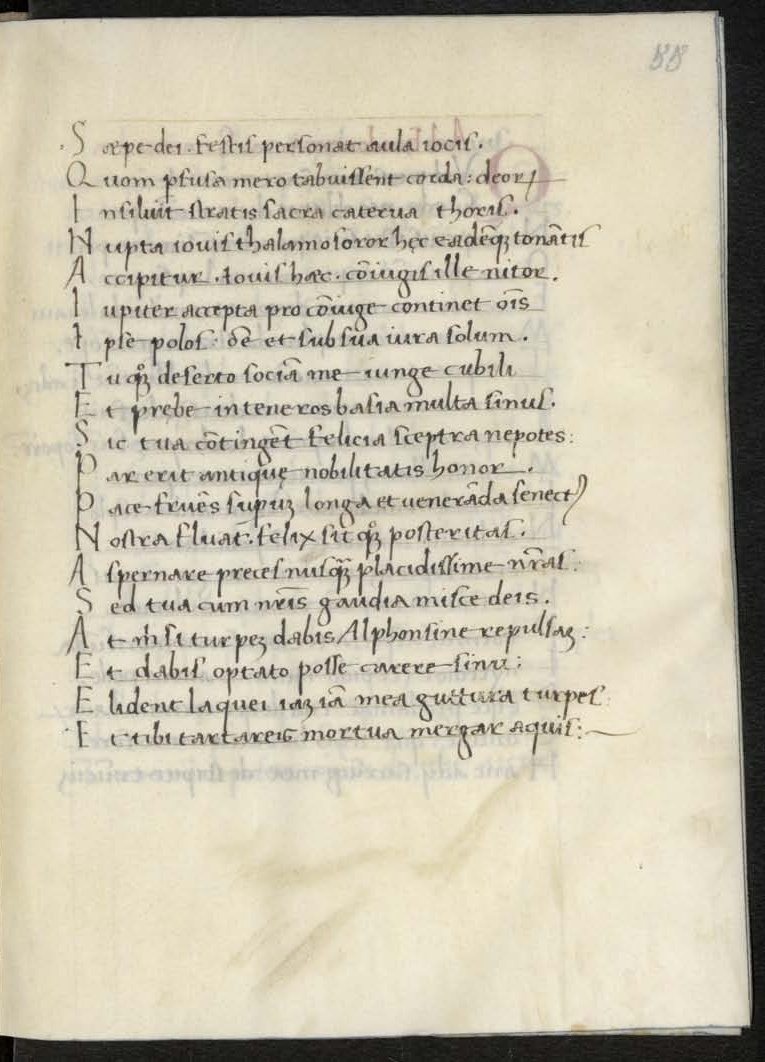 88
Sæpe dei festis personat aula iocis.
Quom pfusa mero tabuissent corda: deoꝝ
Insiluit stratis sacra caterua thoris.
Nupta iouis thalamo soror hęc eadēqꝫ tonātis
Accipitur. Iouis hæc. cōiugis ille nitor.
Iupiter accepta pro cōiuge continet oīs
Ipse polos: de et sub sua iura solum.
Tu qꝫ deserto sociā me iunge cubili
Et prębe in teneros basia multa sinus.
Sic tua cōtingēt felicia sceptra nepotes:
Par erit antiquę nobilitatis honor.
Pace fruēs longa et venerāda senect
Nostra fluat. felix sit qꝫ posteritas.
Aspernare preces nusꝗ̄ placidissime nr̄as:
Sed tua cum nr̄is gaudia misce deis.
At m̄ si turpeꝫ dabis Alphonsine repulsaꝫ:
Et dabis optato posse carere sinu:
Elident laquei iaꝫ iā mea guttura turpes:
Et tibi tartareis mortua mergar aquis: